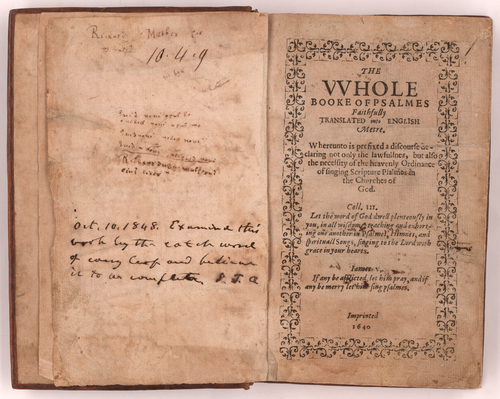 Richard Mather
10.4.9
Oct. 10. 1848. Examined this
book by the catch word
of every leaf and believe
it to be complete. S. J. A
THE
VVHOLE
BOOKE OF PSALMES
Faithfully
TRANSLATED into ENGLISH
Metre.
Whereunto is prefixed a discourse de-
claring not only the lawfullnes, but also
the necessity of the heavenly Ordinance
of singing Scripture Psalmes in
the Churches of
God.
Coll. III.
Let the word of God dwell plenteously in
you, in all wisdome, teaching and exhort-
ing one another in Psalmes, Himnes, and
spirituall Songs, singing to the Lord with
grace in your hearts.
Iames v.
If any be afflicted, let him pray, and if
any be merry let him sing psalmes.
Imprinted
1640